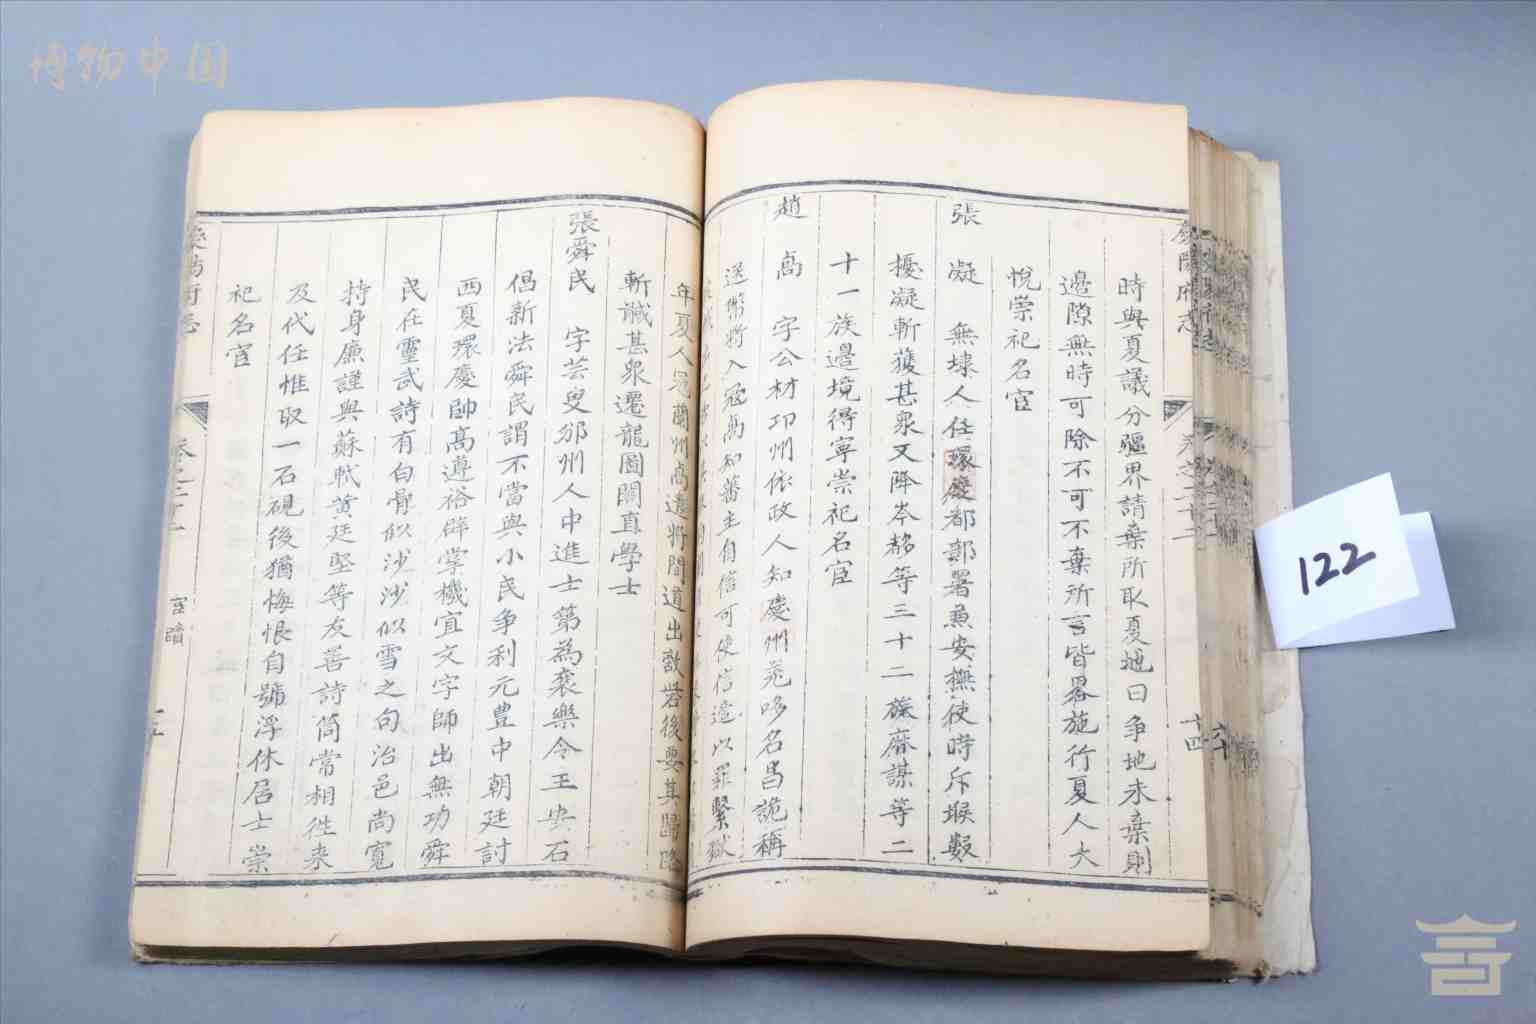 博物中国
慶陽府志
卷之二十二
十四
時與夏議分疆界請棄所取夏地曰爭地未棄則
邊隙無時可除不可不棄所言皆畧施行夏人大
悅崇祀名宦
張凝 無棣人任環慶都部署兼安撫使時斥堠數
擾凝斬獲甚衆又降岑移等三十二族麻謀等二
十一族邊境得寧崇祀名宦
趙卨 字公材邛州依政人知慶州羌哆名昌詭稱
送幣將入寇卨知蕃主自信可使信遺以罪繫獄
年夏人寇蘭州卨遣將間道出敵砦後要其歸路
斬馘甚衆遷龍圖閣直學士
張舜民 字芸叟邠州人中進士第為襄樂令王安石
倡新法舜民謂不當與小民爭利元豊中朝廷討
西夏環慶帥高遵裕辟掌機宜文字師出無功舜
民在靈武詩有白骨似沙沙似雪之句治邑尚寬
持身廉謹與蘇軾黃廷堅等友善詩筒常相徃来
及代任惟取一石硯後猶悔恨自號浮休居士崇
祀名宦
慶陽府志
卷之二十二
宦蹟
十五
122